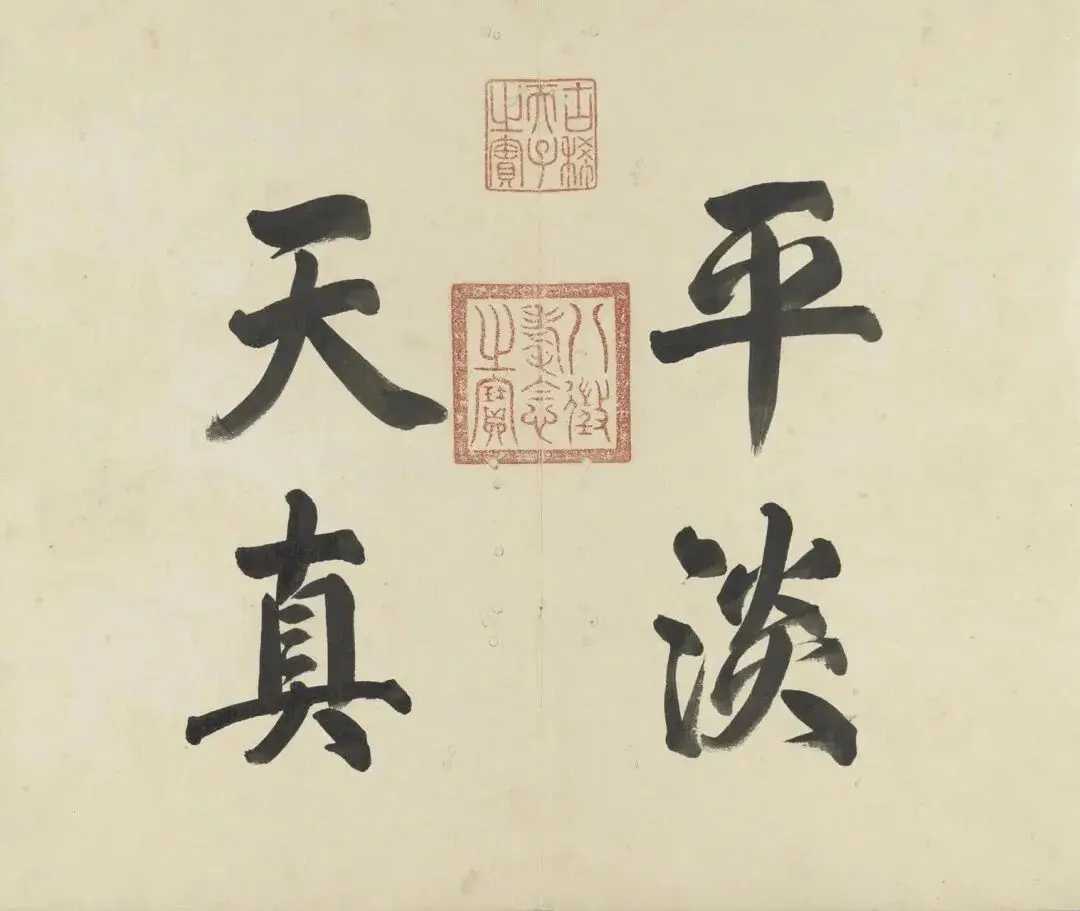 平淡
天真
古稀
天子
之寶
八徵
耄念
之寶